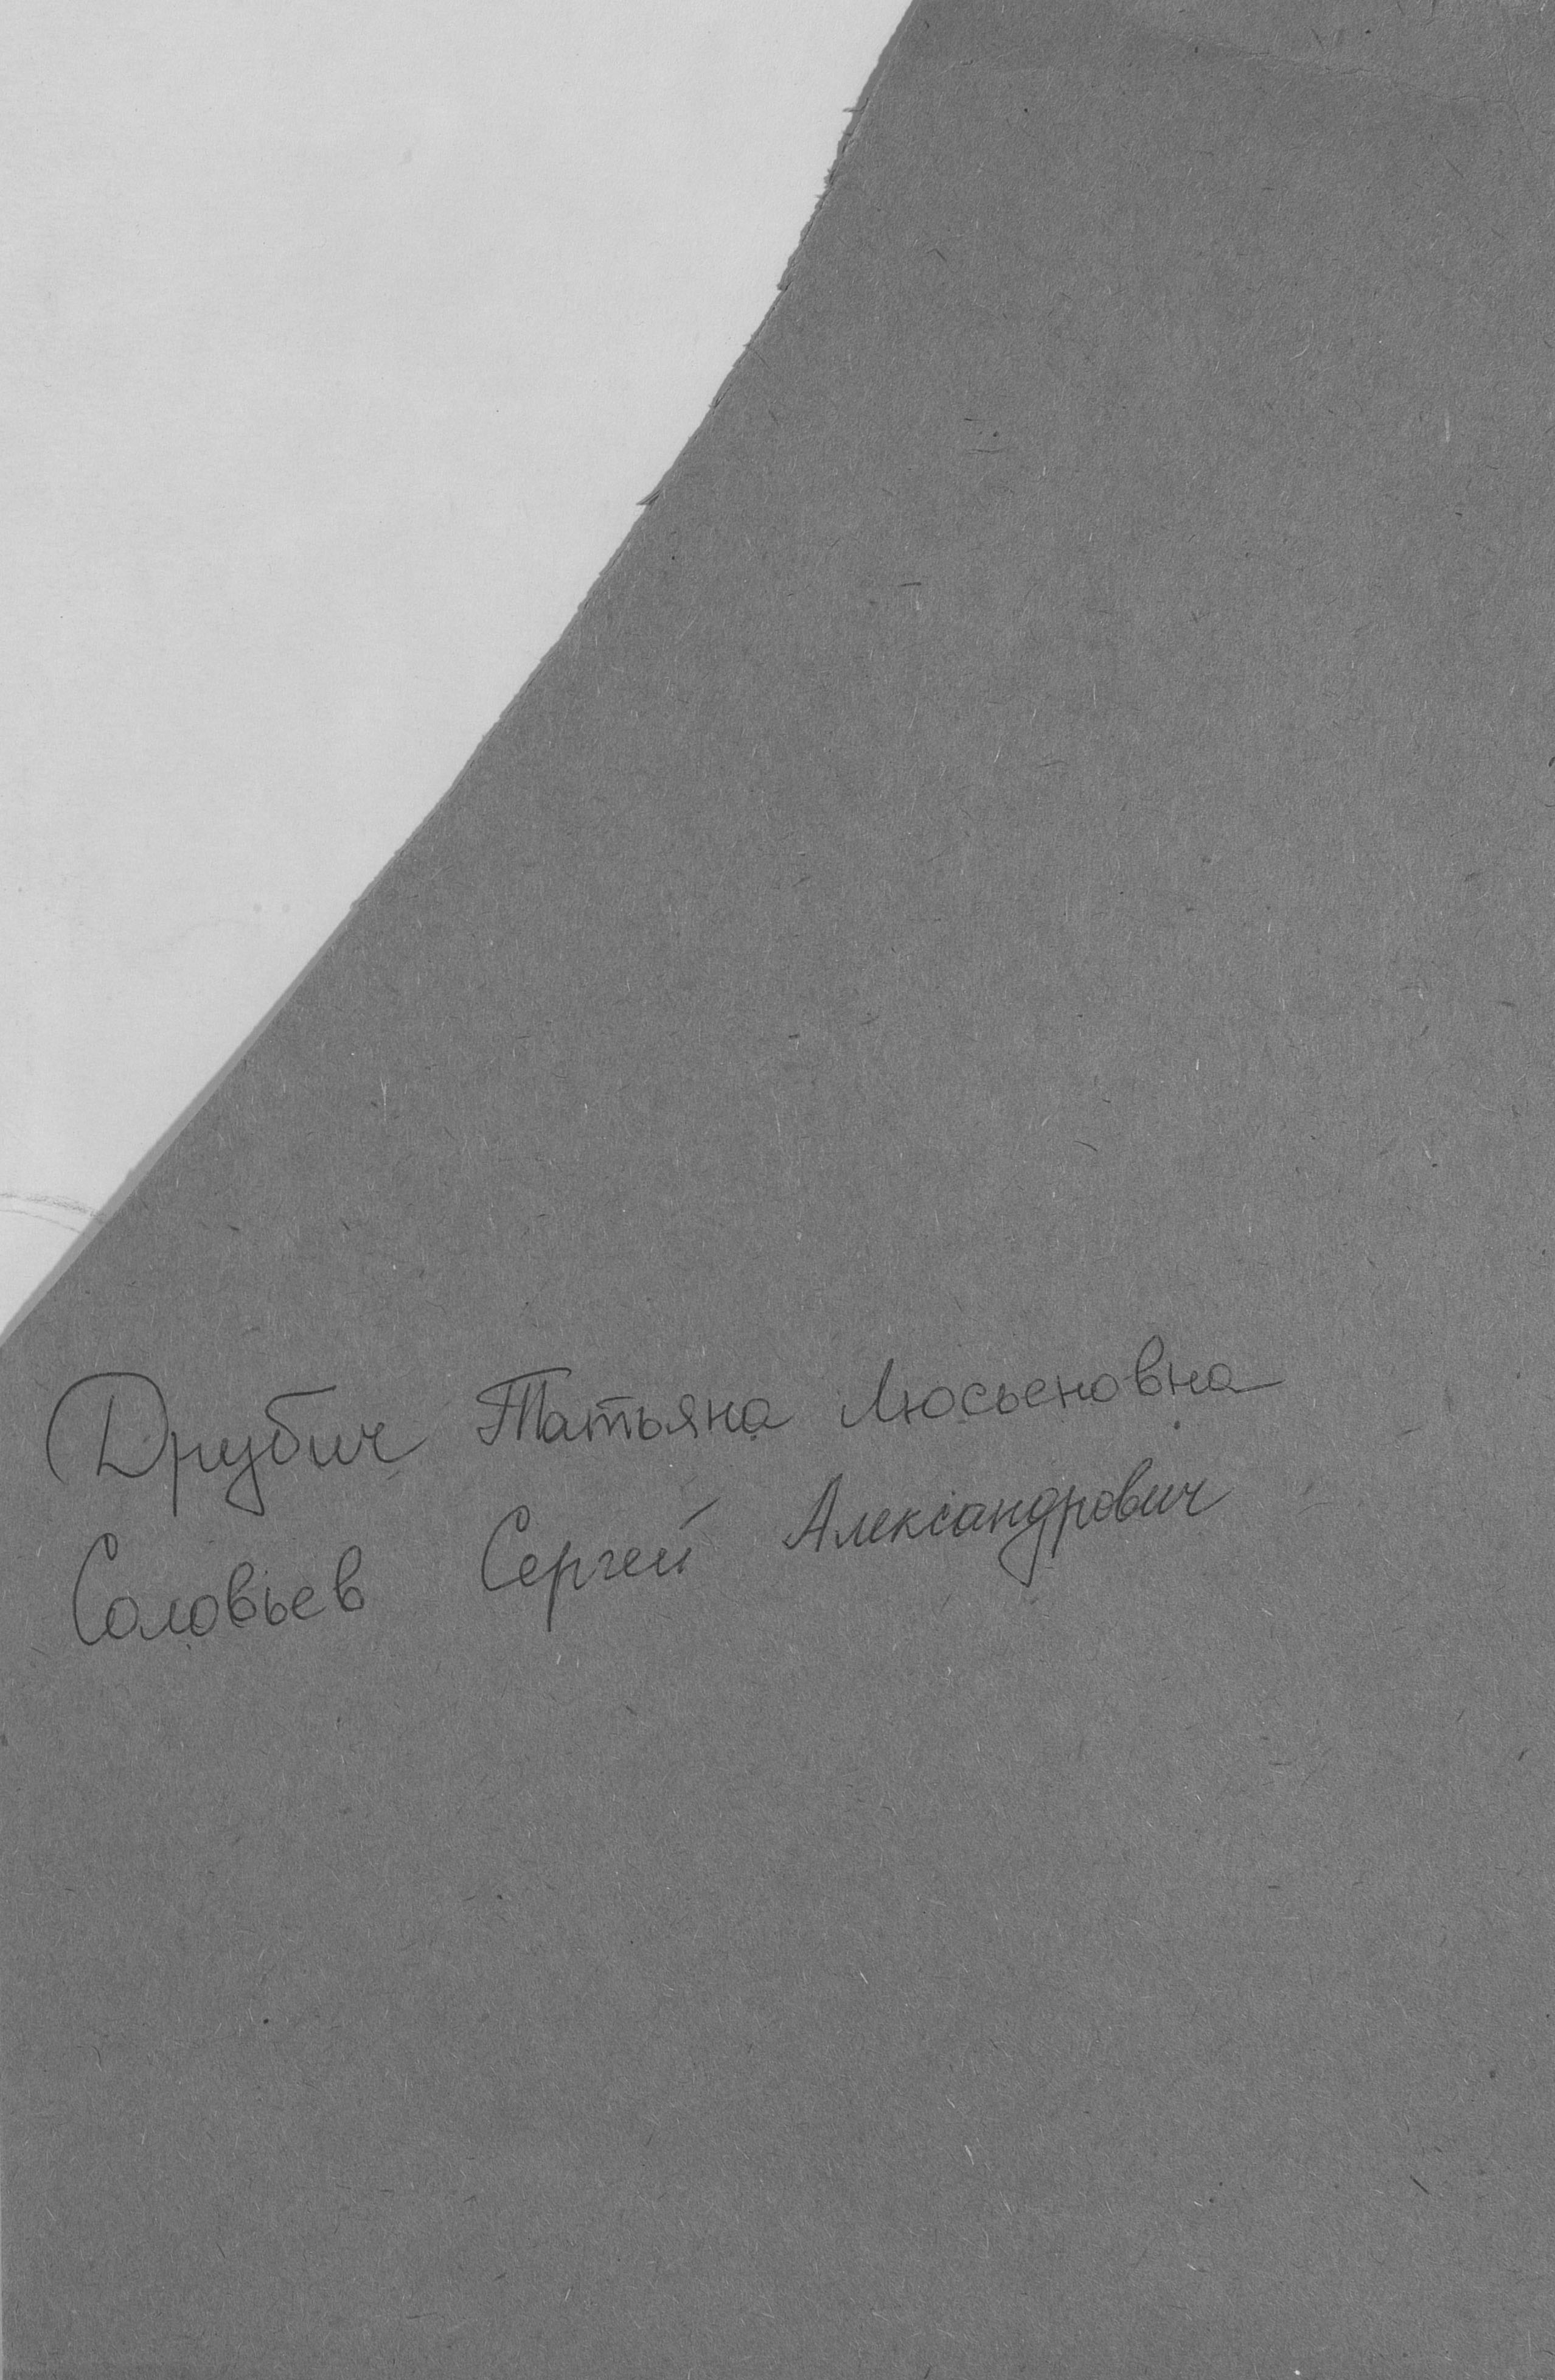 Друбич Татьяна Люсьеновна
Соловьев Сергей Александрович